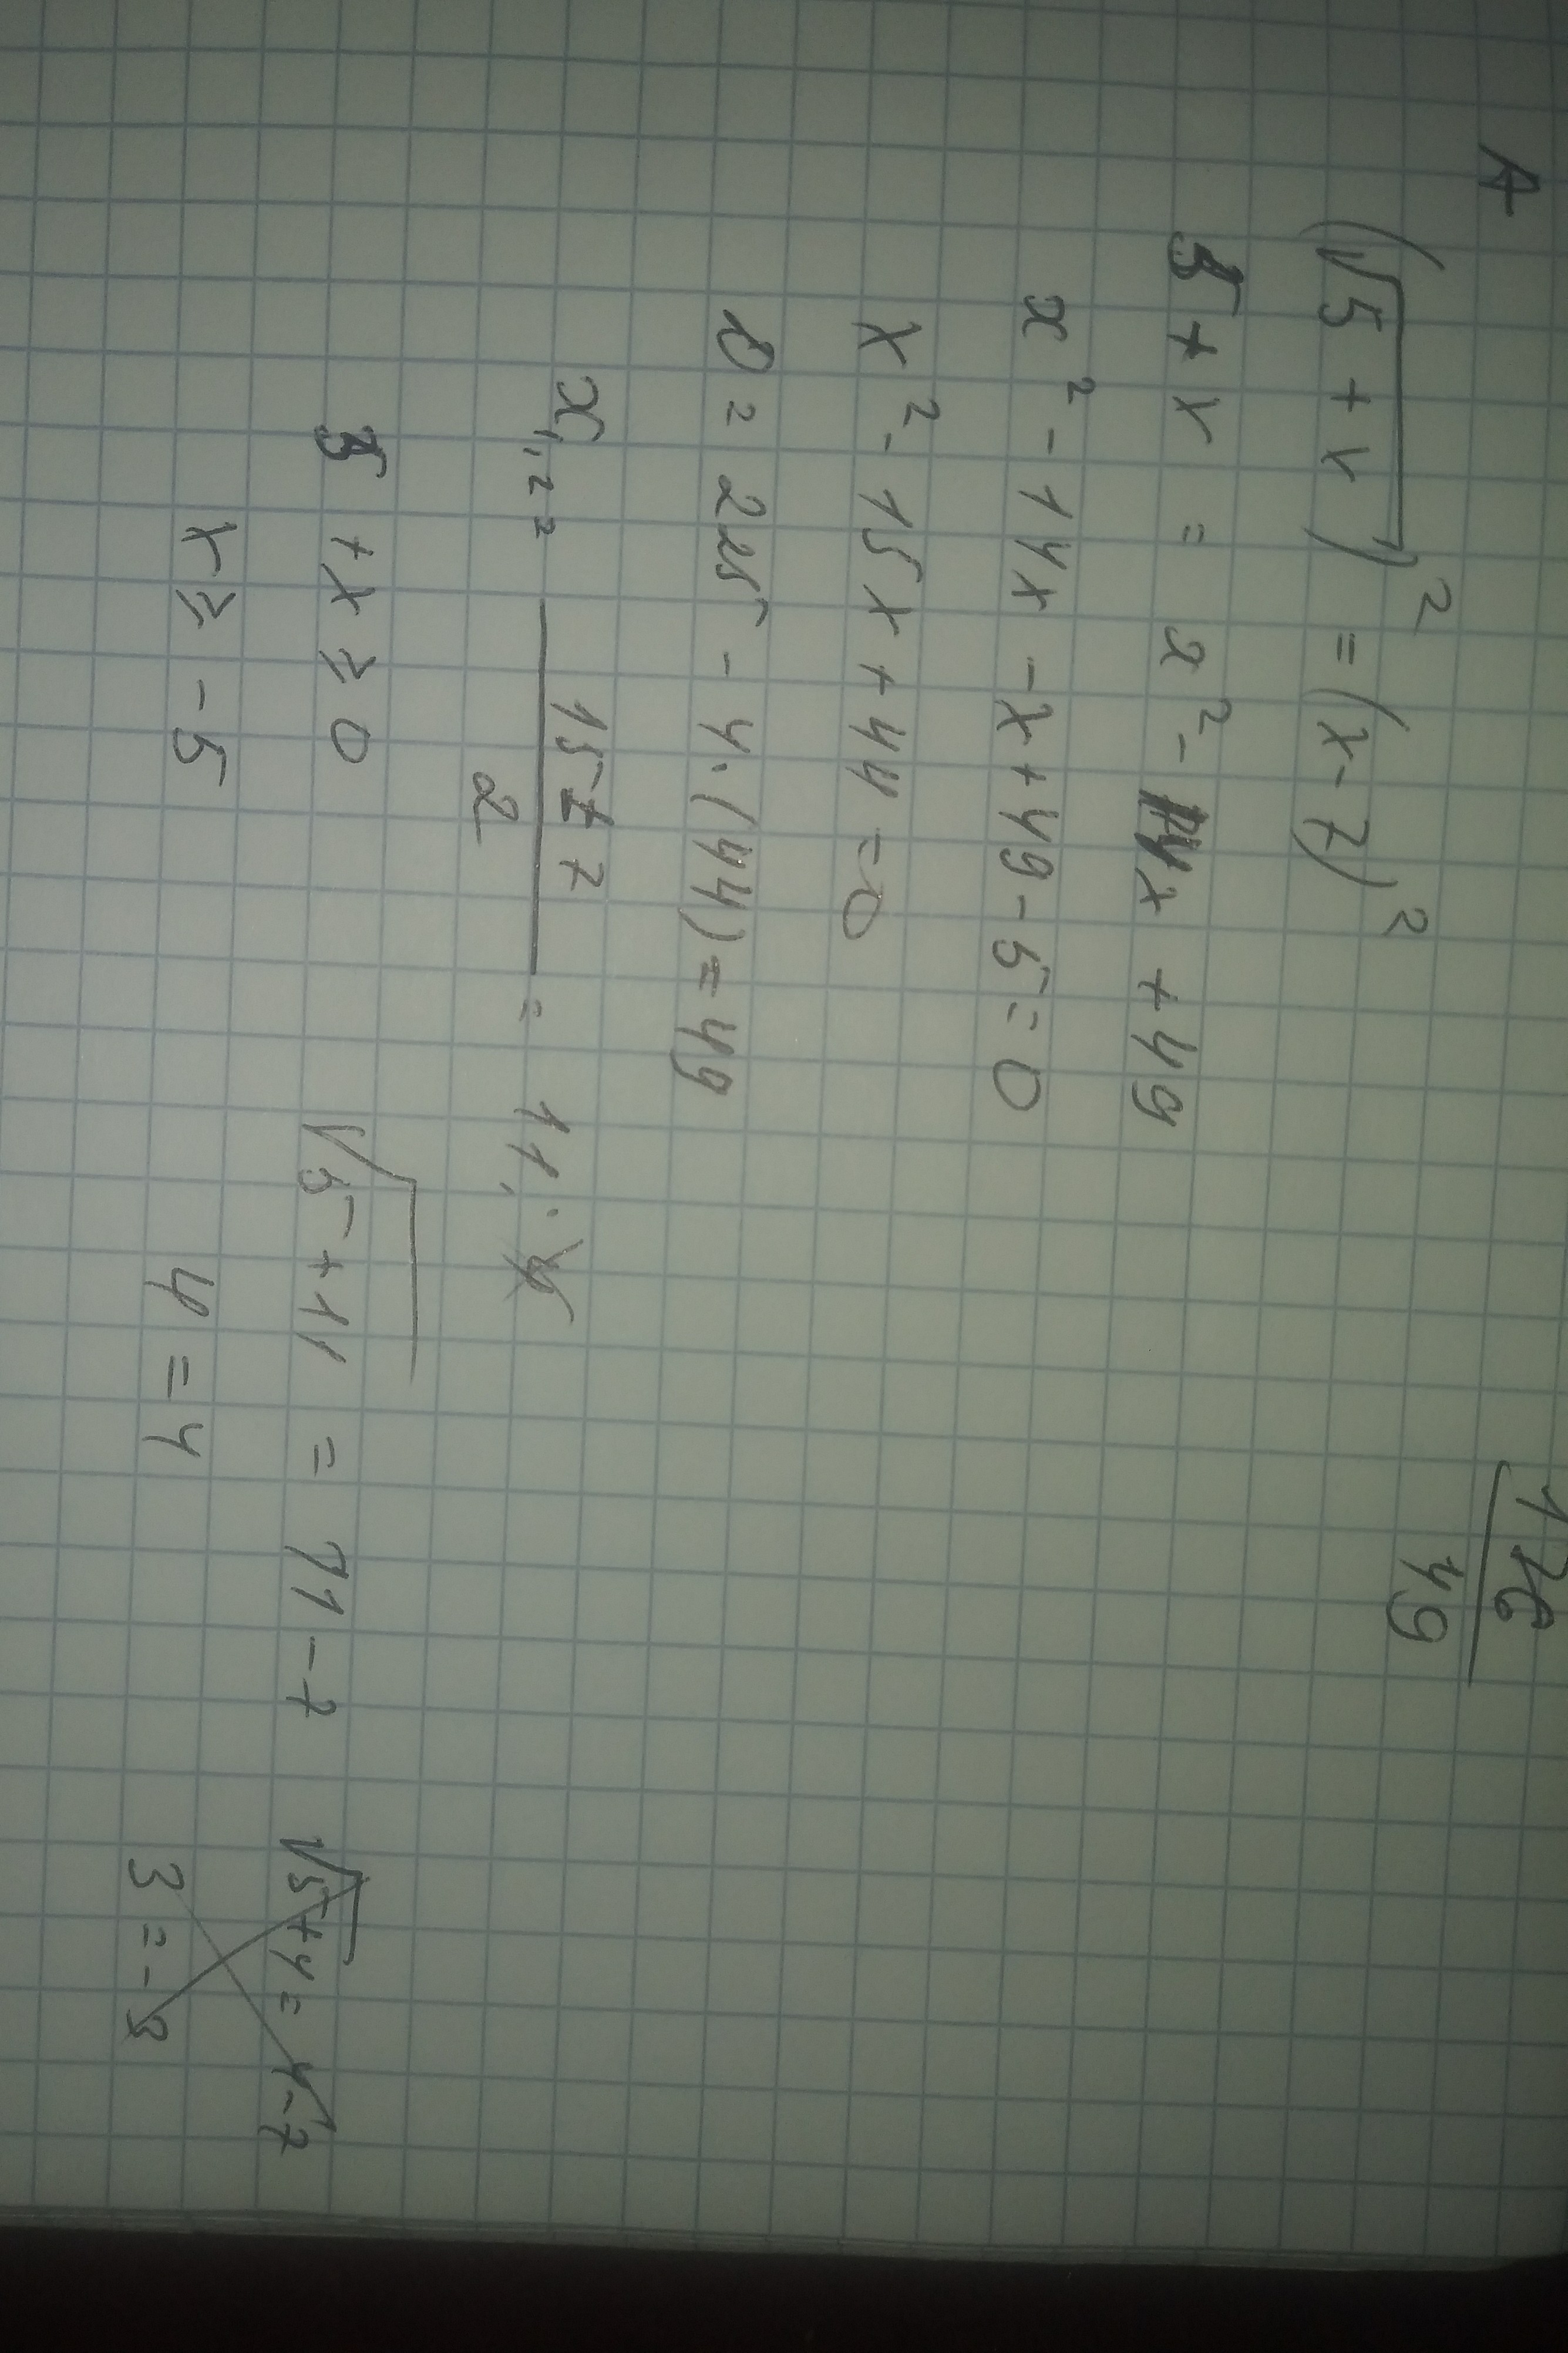 A
176
49
(√5+x)² = (x-7)²
5 + x = x² - 14x + 49
x² - 14x - x + 49 - 5 = 0
x² - 15x + 44 = 0
D = 225 - 4·(44) = 49
x₁,₂ = (15 ± 7)/2 = 11,
5 + x ≥ 0
x ≥ -5
√5+11 = 11 - 7
4 = 4
√5+4 = 4-7
3 = -3